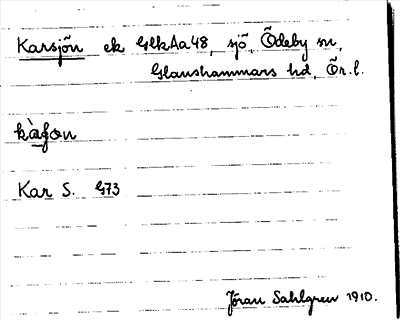 Karsjön ek GlkAa48, sjö, Ödeby sn,
Glanshammars hd, Ör.l.
kàʃon
Kar S. G73
Jöran Sahlgren 1910.